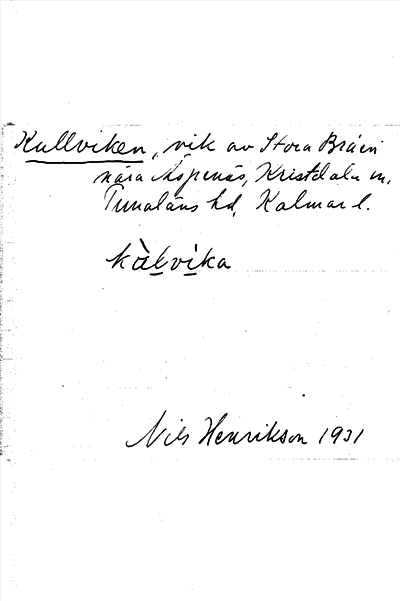 Kallviken, vik av Stora Bråen
nära Äspenäs, Kristdala sn,
Tunaläns hd, Kalmar l.
kàlvíka
Nils Henrikson 1931